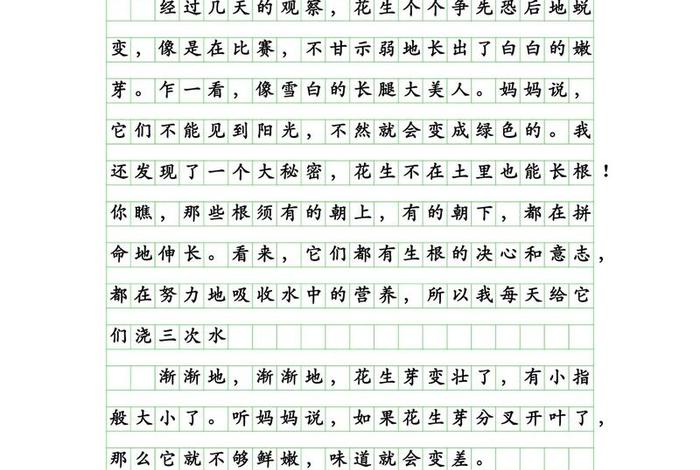 经过几天的观察，花生个个争先恐后地蜕
变，像是在比赛，不甘示弱地长出了白白的嫩
芽。乍一看，像雪白的长腿大美人。妈妈说，
它们不能见到阳光，不然就会变成绿色的。我
还发现了一个大秘密，花生不在土里也能长根！
你瞧，那些根须有的朝上，有的朝下，都在拼
命地伸长。看来，它们都有生根的决心和意志，
都在努力地吸收水中的营养，所以我每天给它
们浇三次水
渐渐地，渐渐地，花生芽变壮了，有小指
般大小了。听妈妈说，如果花生芽分叉开叶了，
那么它就不够鲜嫩，味道就会变差。